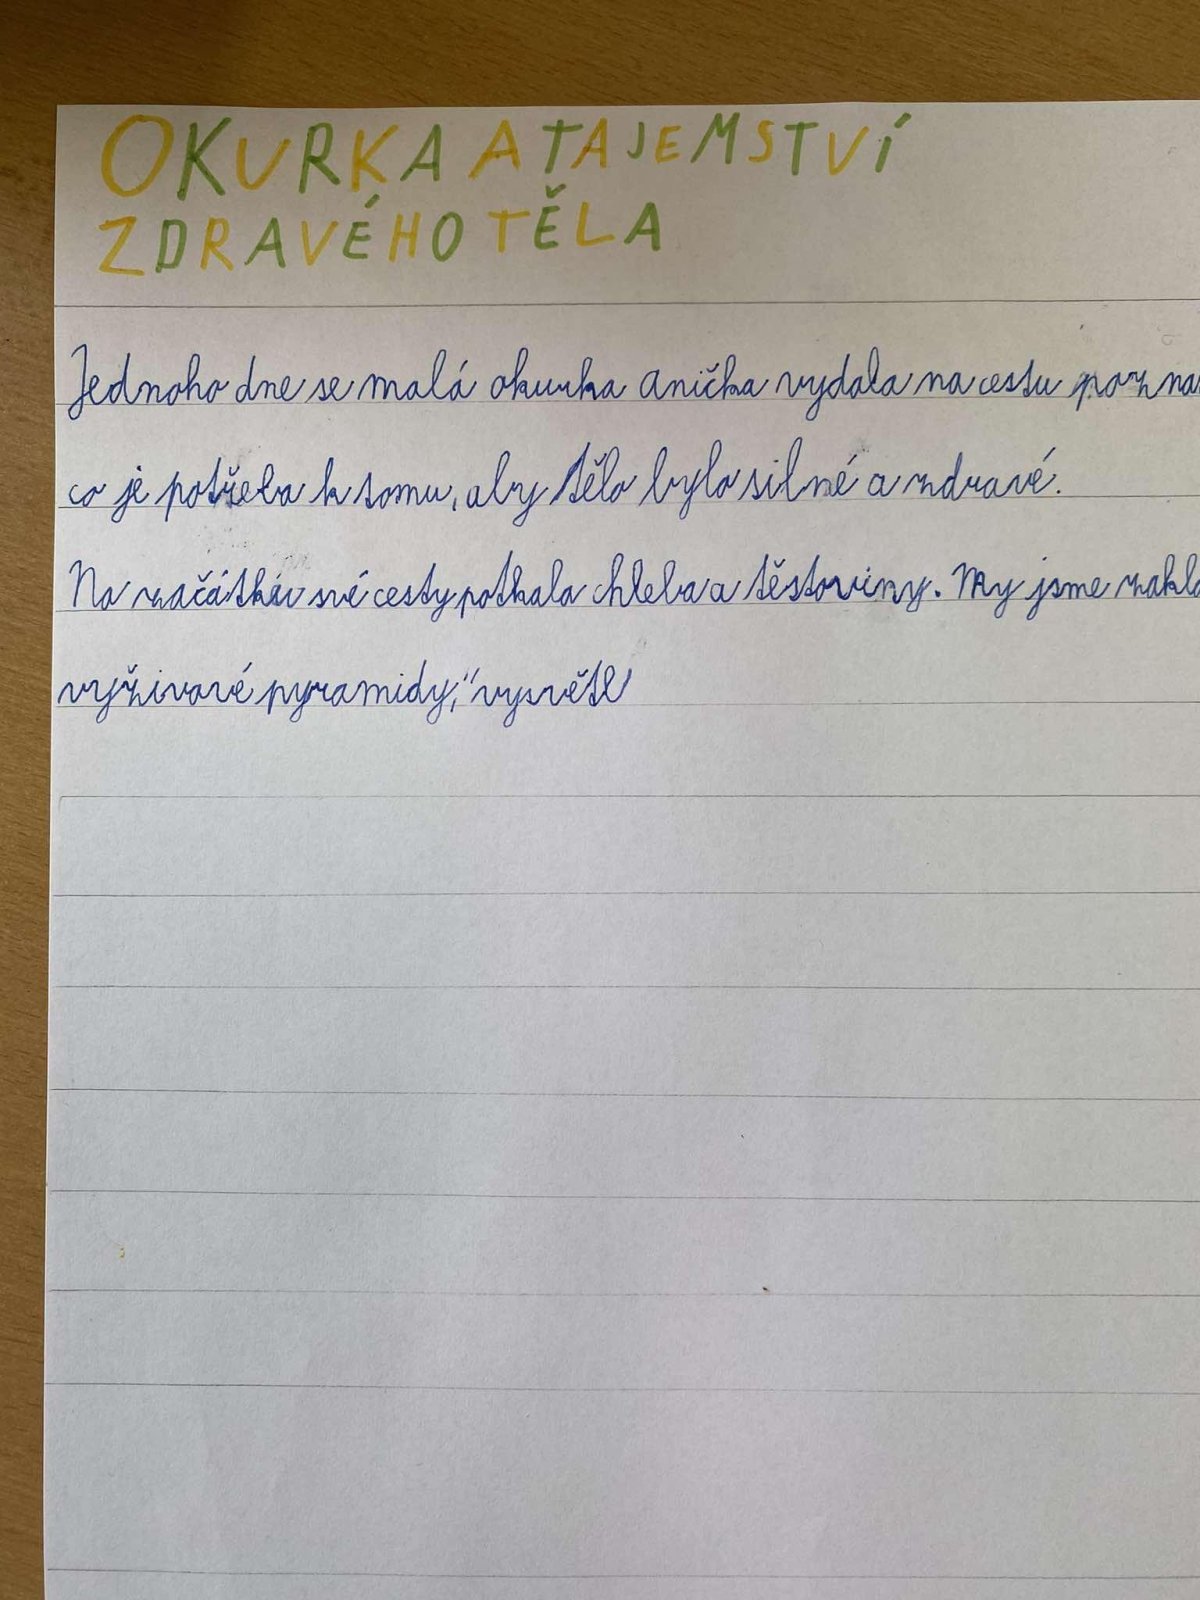 OKURKA A TAJEMSTVÍ
ZDRAVÉHO TĚLA
Jednoho dne se malá okurka Anička vydala na cestu
co je potřeba k tomu, aby tělo bylo silné a zdravé.
Na začátku své cesty potkala chleba a těstoviny. My jsme
výživové pyramidy," vysvětl